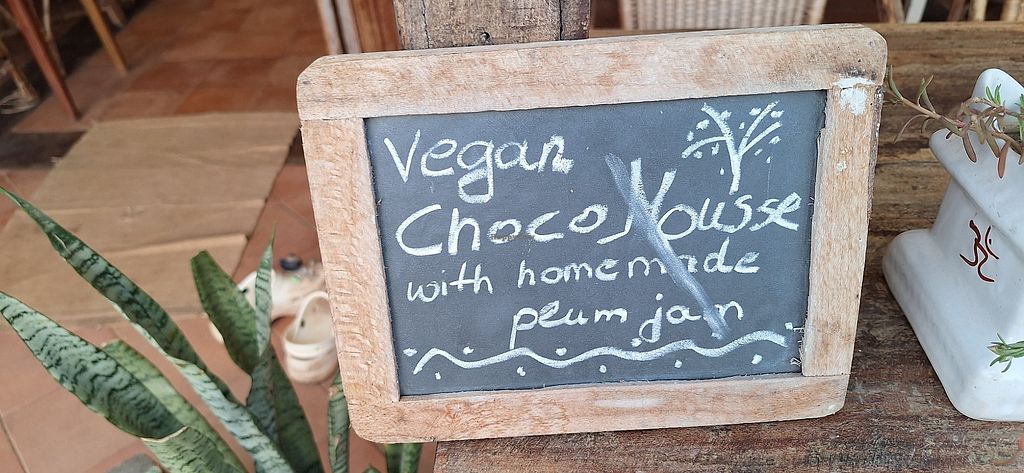 Vegan
Choco Mousse
with homemade
plum jam